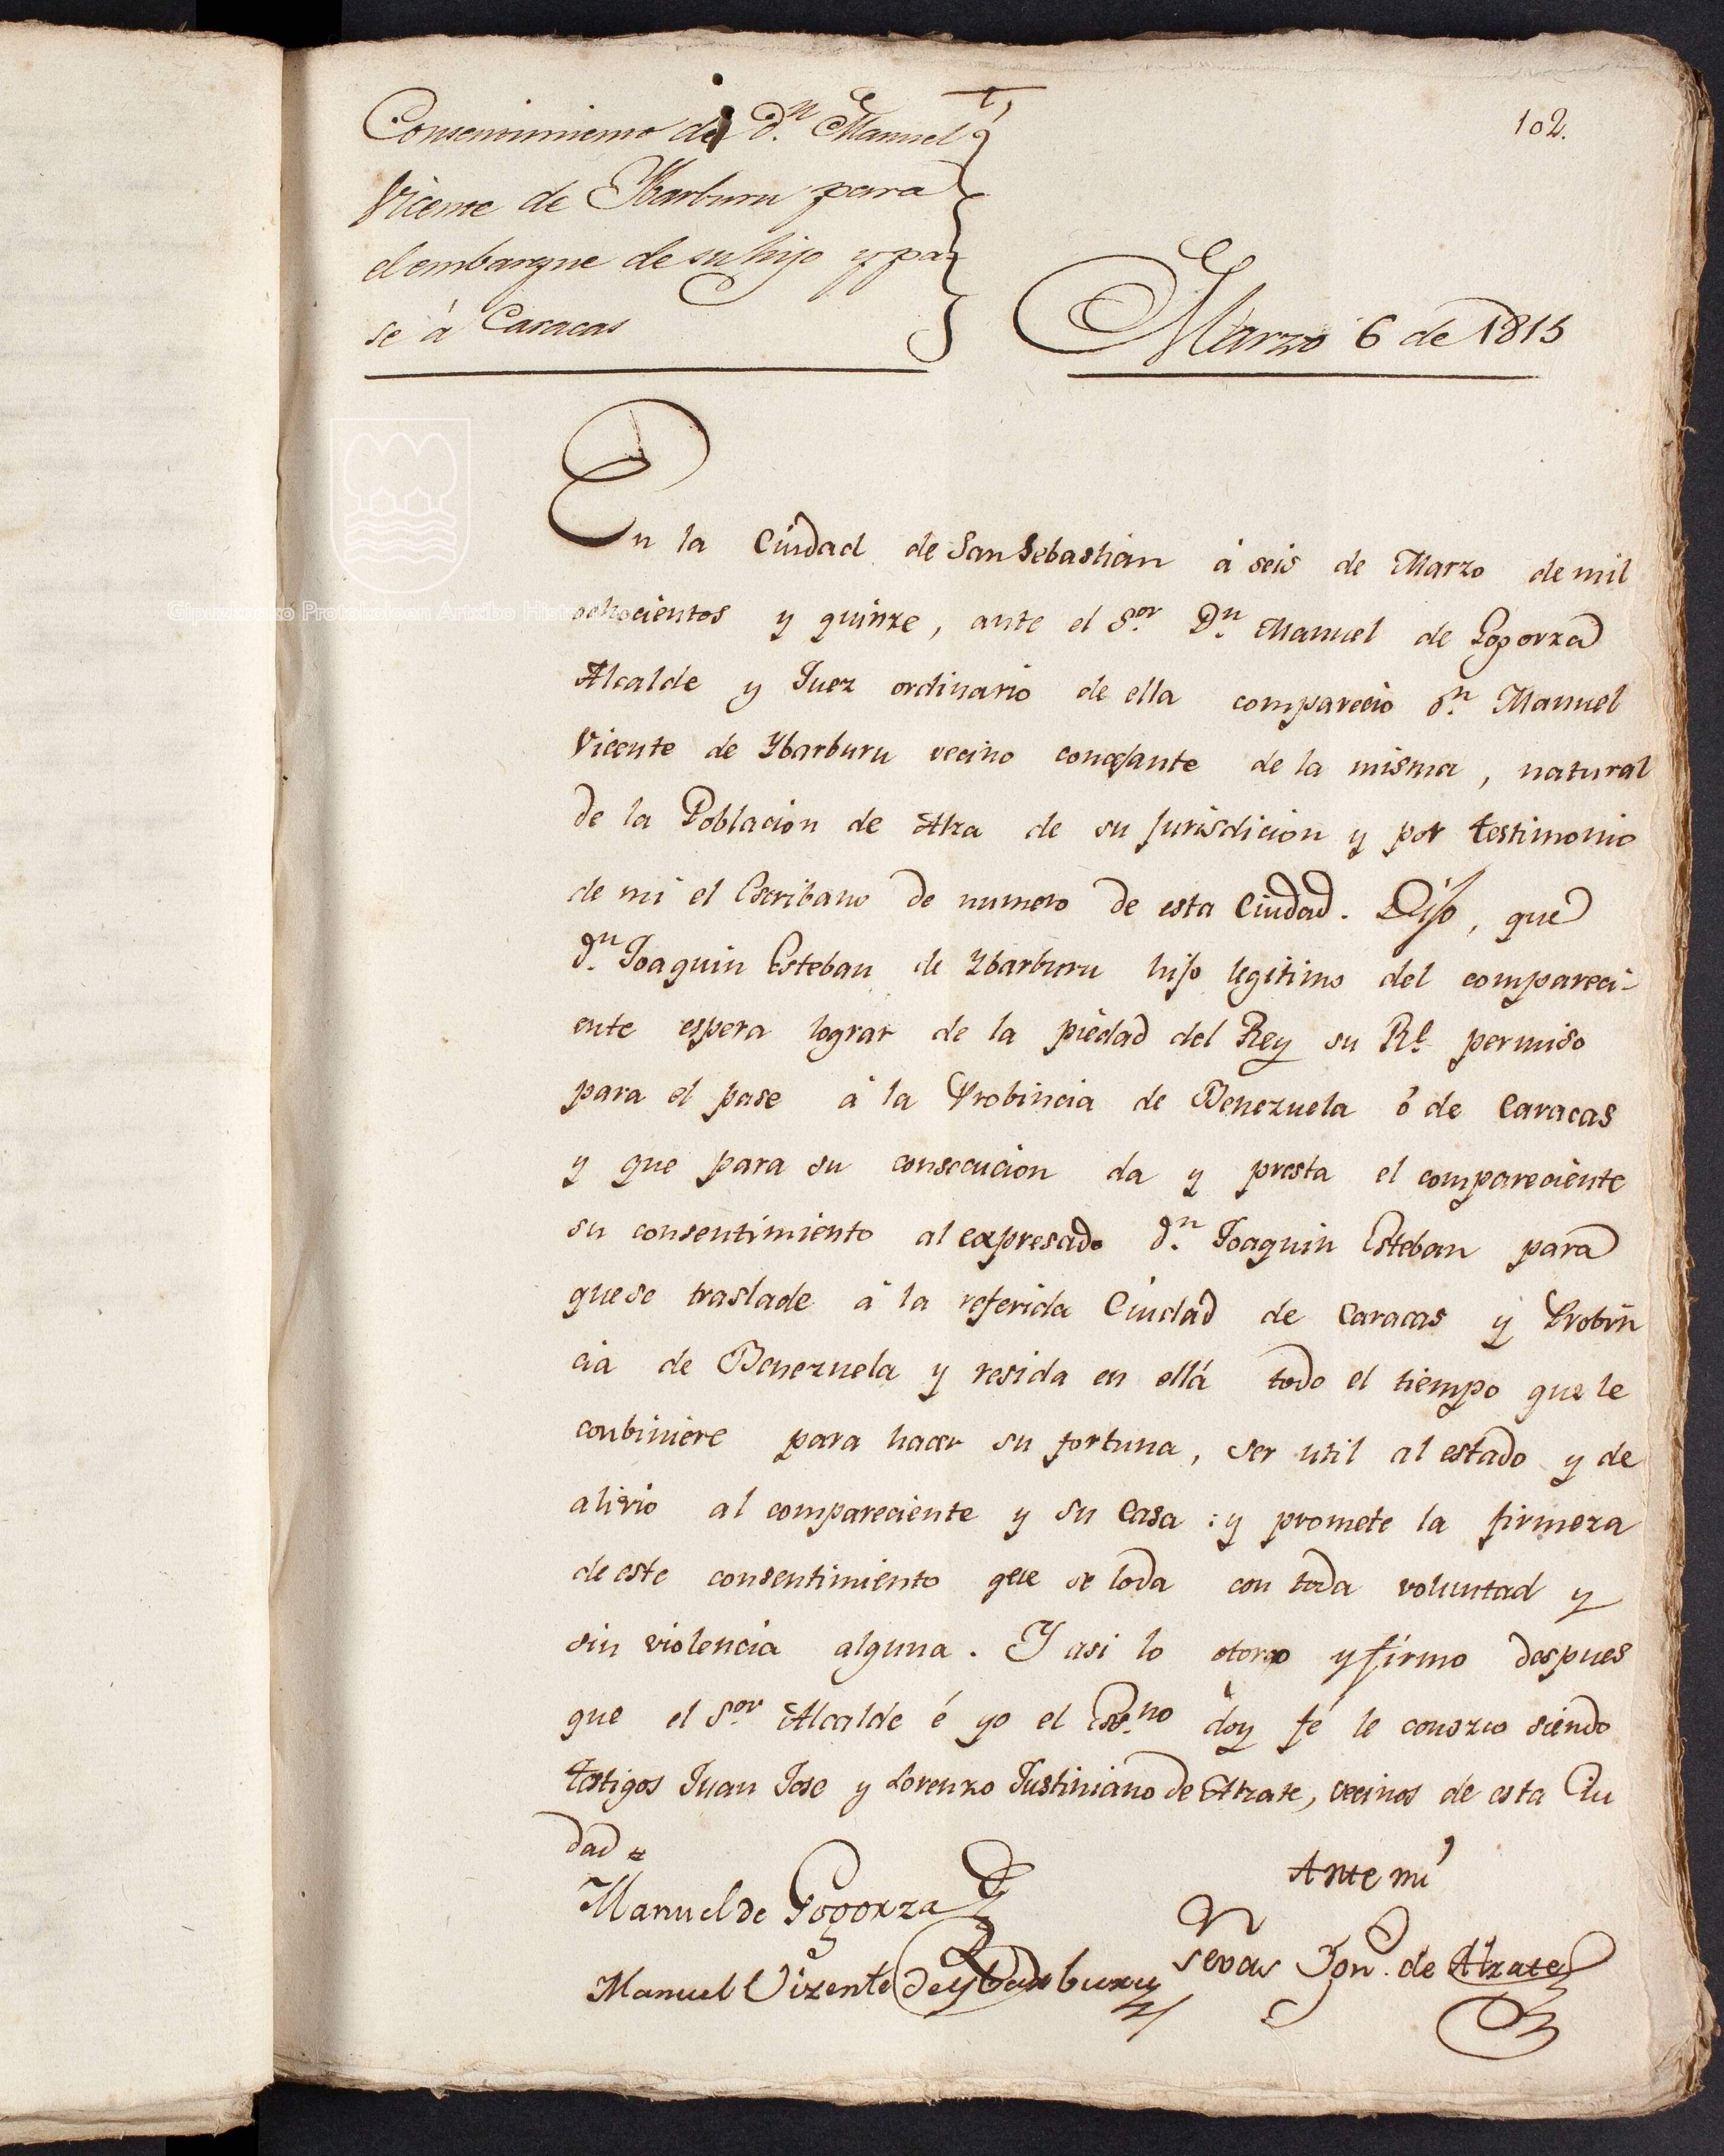 102.
Consentimiento de D.n Manuel
Vicente de Ybarburu para
el embarque de su hijo y pa
se á Caracas
Marzo 6 de 1815
En la Ciudad de San Sebastian á seis de Marzo de mil
ochocientos y quinze, ante el S.or D.n Manuel de Gogorza
Alcalde y Juez ordinario de ella comparecio d.n Manuel
Vicente de Ybarburu vecino concejante de la misma, natural
de la Poblacion de Alza de su jurisdicion y por testimonio
de mi el Escribano de numero de esta Ciudad. Dijo, que
d.n Joaquin Esteban de Ybarburu hijo legitimo del compareci-
ente espera lograr de la piedad del Rey su R.l permiso
para el pase á la Probincia de Benezuela ó de Caracas
y que para su consecucion da y presta el compareciente
su consentimiento al expresado d.n Joaquin Esteban para
que se traslade á la referida Ciudad de Caracas y Probin
cia de Benezuela y resida en ella todo el tiempo que le
conbiniere para hacer su fortuna, ser util al estado y de
alivio al compareciente y su Casa: y promete la firmeza
de este consentimiento que se lo da con toda voluntad y
sin violencia alguna. Y asi lo otorgo y firmo despues
que el S.or Alcalde é yo el Es.no doy fé le conozco siendo
testigos Juan Jose y Lorenzo Justiniano de Alzate, vecinos de esta Ciu
dad =
Manuel de Gogorza
Ante mi
Manuel Vizente de Ybarburu
Sevas Ign. de Alzate
Gipuzkoako Protokoloen Artxibo